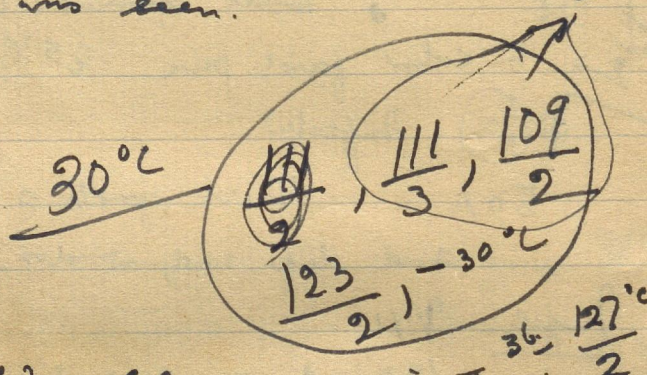 was seen.
30°C
111/3, 109/2
123/2, -30°C
127°C/2